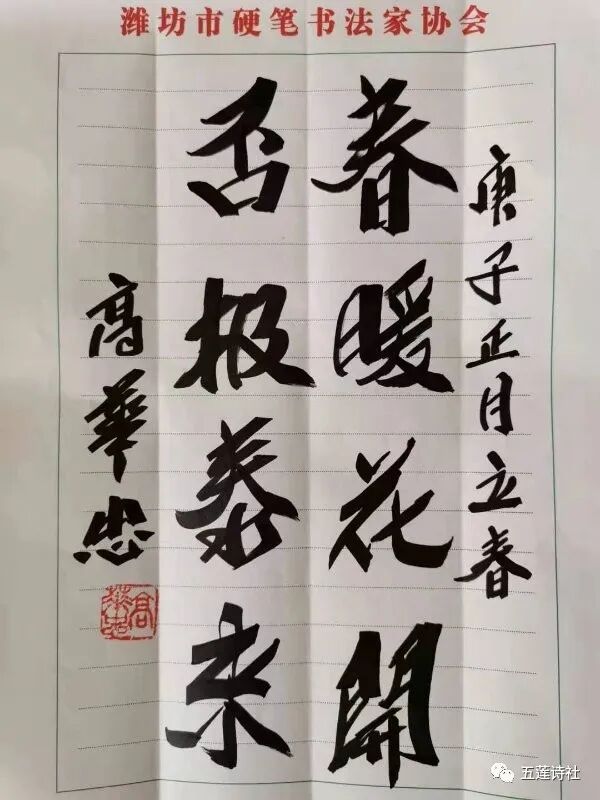 潍坊市硬笔书法家协会
庚子正月立春
春暖花開
否极泰来
高華忠
高華忠
五莲诗社